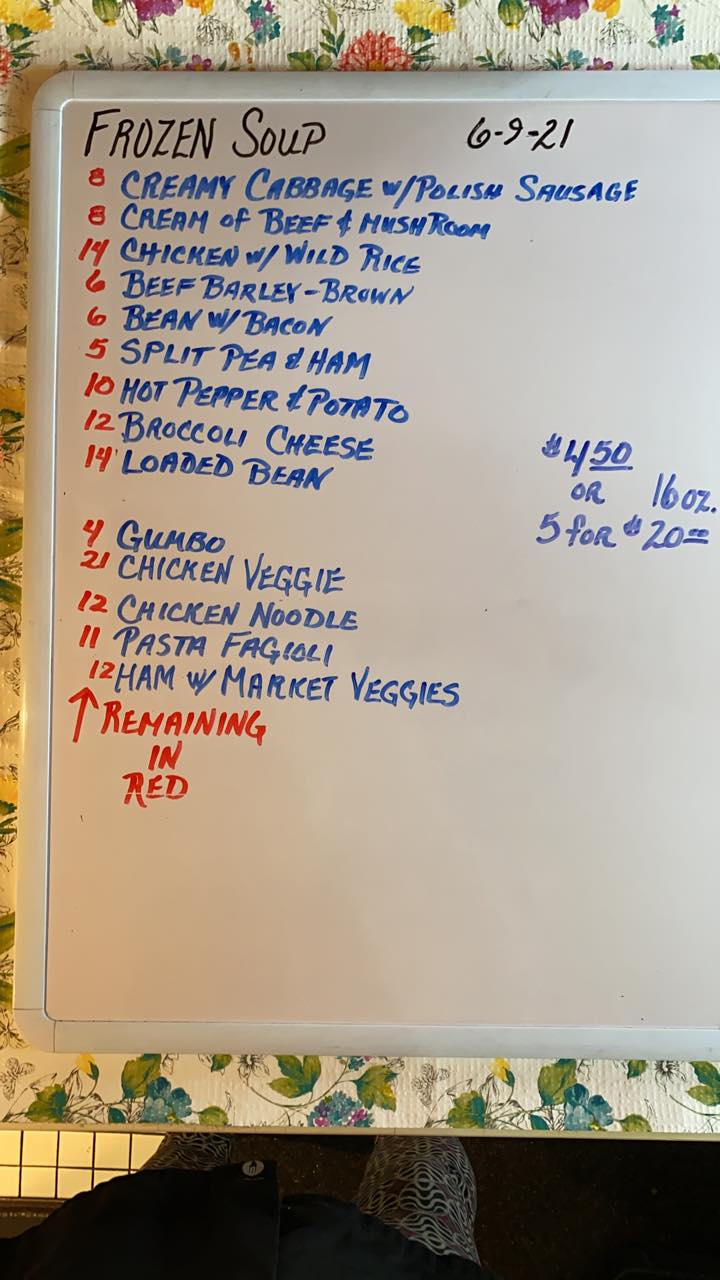 FROZEN SOUP 6-9-21
8 CREAMY CABBAGE W/POLISH SAUSAGE
8 CREAM OF BEEF & MUSHROOM
14 CHICKEN W/ WILD RICE
6 BEEF BARLEY-BROWN
6 BEAN W/ BACON
5 SPLIT PEA & HAM
10 HOT PEPPER & POTATO
12 BROCCOLI CHEESE
14 LOADED BEAN
$4.50
OR 16 oz.
5 FOR $20.00
4 GUMBO
21 CHICKEN VEGGIE
12 CHICKEN NOODLE
11 PASTA FAGIOLI
12 HAM W/ MARKET VEGGIES
↑ REMAINING
IN
RED